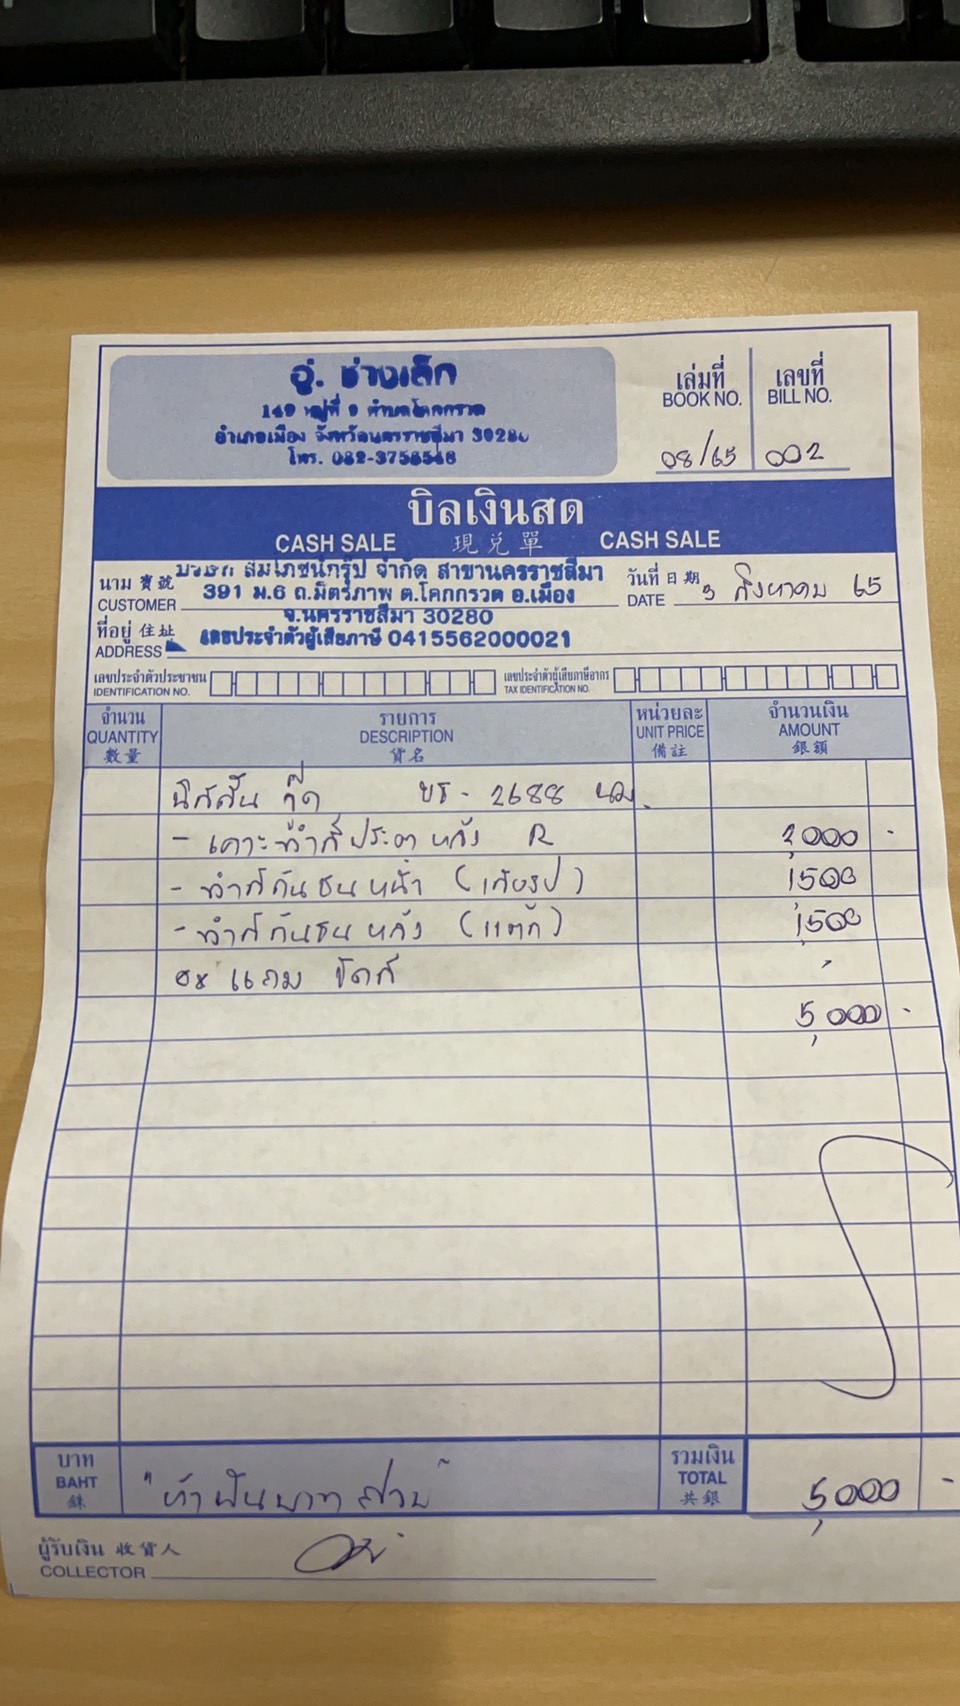 อู่. ช่างเล็ก
149 หมู่ที่ 9 ตำบลโคกกรวด
อำเภอเมือง จังหวัดนครราชสีมา 30280
โทร. 082-3756548
เล่มที่
BOOK NO.
08/65
เลขที่
BILL NO.
002
บิลเงินสด
CASH SALE 現兌單 CASH SALE
นาม 寶號
CUSTOMER
บริษัท สมโภชน์กรุ๊ป จำกัด สาขานครราชสีมา
391 ม.6 ถ.มิตรภาพ ต.โคกกรวด อ.เมือง
จ.นครราชสีมา 30280
เลขประจำตัวผู้เสียภาษี 0415562000021
วันที่ 日期
DATE 3 สิงหาคม 65
ที่อยู่ 住址
ADDRESS
เลขประจำตัวประชาชน
IDENTIFICATION NO.
เลขประจำตัวผู้เสียภาษีอากร
TAX IDENTIFICATION NO.
จำนวน
QUANTITY
數量
รายการ
DESCRIPTION
貨名
หน่วยละ
UNIT PRICE
備註
จำนวนเงิน
AMOUNT
銀額
นิสสัน บธ - 2688 นม.
- เคาะทำสีประตูหลัง R 2,000 -
- ทำสีกันชนหน้า 1,500
- ทำสีกันชนหลัง (แตก) 1,500
แถม ขัดสี
5,000 -
บาท
BAHT
銖
"ห้าพันบาทถ้วน"
รวมเงิน
TOTAL
共銀
5,000 -
ผู้รับเงิน 收貨人
COLLECTOR